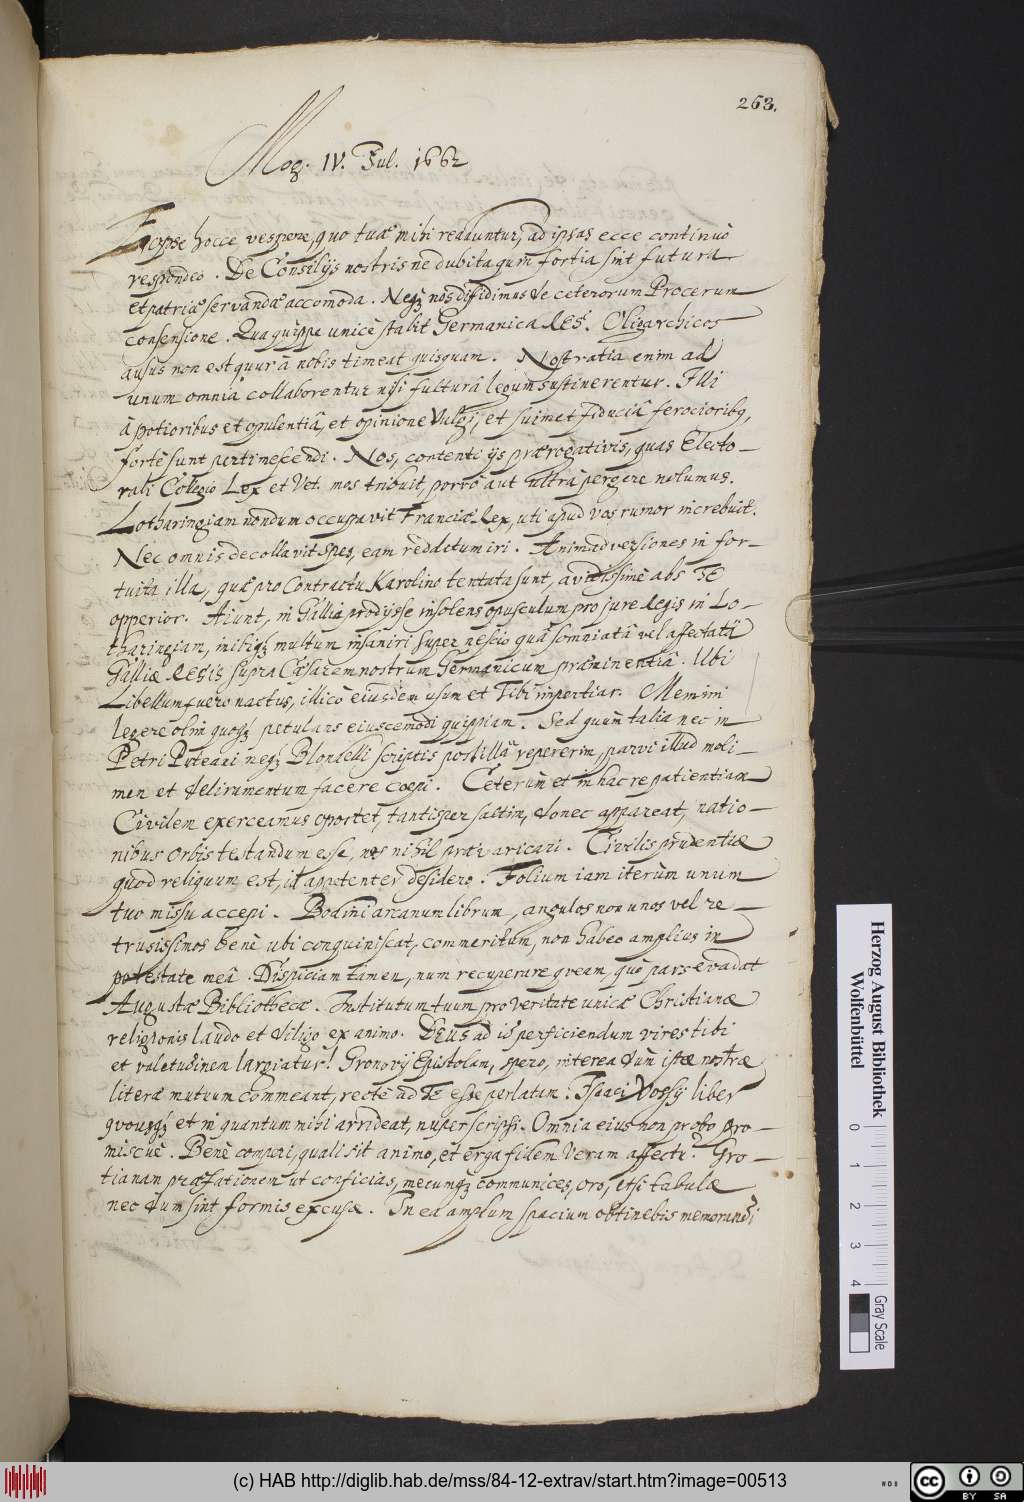 263.
Mog. IV. Jul. 1662
Eopse hocce vespere, quo tuae mihi redduntur, ad ipsas ecce continuò
respondeo. De Consilijs nostris ne dubita quin fortia sint futura
et patriae servandae accomoda. Neq; nos diffidimus de ceterorum Procerum
consensione. Qua quippe unicè stabit Germanica Res. Oligarchicos
ausus non est quur à nobis timeat quisquam. Nostratia enim ad
unum omnia collaborentur nisi fulturâ legum sustinerentur. Illi
à potioribus et opulentiâ, et opinione Vulgi, et suimet fiduciâ ferocioribq,
fortè sunt pertimescendi. Nos, contenti ijs praerogativis, quas Electo-
rali Collegio Lex et Vet. mos tribuit, porrò aut ultrà pergere nolumus.
Lotharingiam nondum occupavit Franciae Rex, uti apud vos rumor increbuit.
Nec omnis decollavit spes, eam redditum iri. Animadversiones in for-
tuita illa, quae pro Contractu Karolino tentata sunt, avidissimè abs Te
opperior. Aiunt, in Gallia prodijsse insolens opusculum pro jure Regis in Lo-
tharingiam, inibiq; multum insaniri super nescio quâ somniatâ vel affectatâ
Galliae Regis supra Caesarem nostrum Germanicum praeminentiâ. Ubi
Libellum fuero nactus, illicò eiusdem usum et Tibi impertiar. Memini
legere olim quoq; petulans eiuscemodi quippiam. Sed quum talia nec in
Petri Puteani neq; Blondelli scriptis postillà repererim, parvi illud moli-
men et delirumentum facere coepi. Ceterùm et in hac re patientiam
Civilem exerceamus oportet, tantisper saltim, donec appareat, natio-
nibus orbis testandum esse, nos nihil praevaricari. Civilis prudentiae
quod reliquum est, id appetenter desidero. Folium iam iterùm unum
tuo missu accepi. Bodini arcanum librum, angulos non unos vel re-
trusissimos benè ubi conquiniscat, commeritum, non habeo amplius in
potestate meâ. Dispiciam tamen, num recuperare queam, quò pars evadat
Augustae Bibliothecae. Institutum tuum pro Veritate unicae Christianae
religionis laudo et diligo ex animo. DEUS ad id perficiendum vires tibi
et valetudinem largiatur! Gronovij Epistolam, spero, interea dum istae nostrae
literae mutuum commeant, rectè ad Te esse perlatam. Isaaci Vossij liber
quousq; et in quantum mihi arrideat, nuper scripsi. Omnia eius non probo pro-
miscuè. Benè comperi, quali sit animo, et erga fidem veram affectu. Gro-
tianam praefationem ut conficias, mecumq; communices, oro, etsi tabulae
nec dum sint formis excusae. In ea amplum spacium obtinebis memorandi
Herzog August Bibliothek
Wolfenbüttel
0 1 2 3 4
Gray Scale
(c) HAB http://diglib.hab.de/mss/84-12-extrav/start.htm?image=00513
WDB
cc BY SA